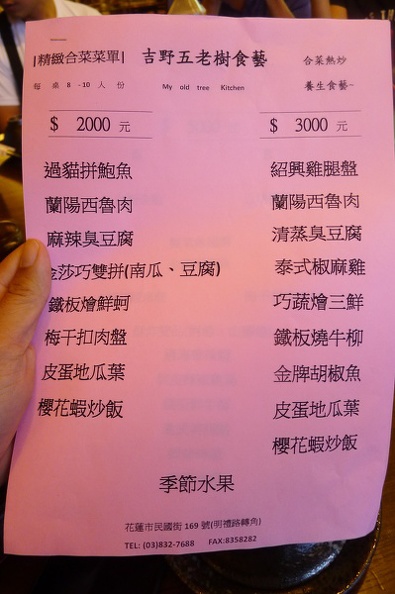 |精緻合菜菜單| 吉野五老樹食藝 合菜熱炒
每 桌 8 -10 人 份 My old tree Kitchen 養生食藝~
$ 2000 元
過貓拼鮑魚
蘭陽西魯肉
麻辣臭豆腐
金莎巧雙拼(南瓜、豆腐)
鐵板燴鮮蚵
梅干扣肉盤
皮蛋地瓜葉
櫻花蝦炒飯
$ 3000 元
紹興雞腿盤
蘭陽西魯肉
清蒸臭豆腐
泰式椒麻雞
巧蔬燴三鮮
鐵板燒牛柳
金牌胡椒魚
皮蛋地瓜葉
櫻花蝦炒飯
季節水果
花蓮市民國街 169 號(明禮路轉角)
TEL: (03)832-7688 FAX:8358282